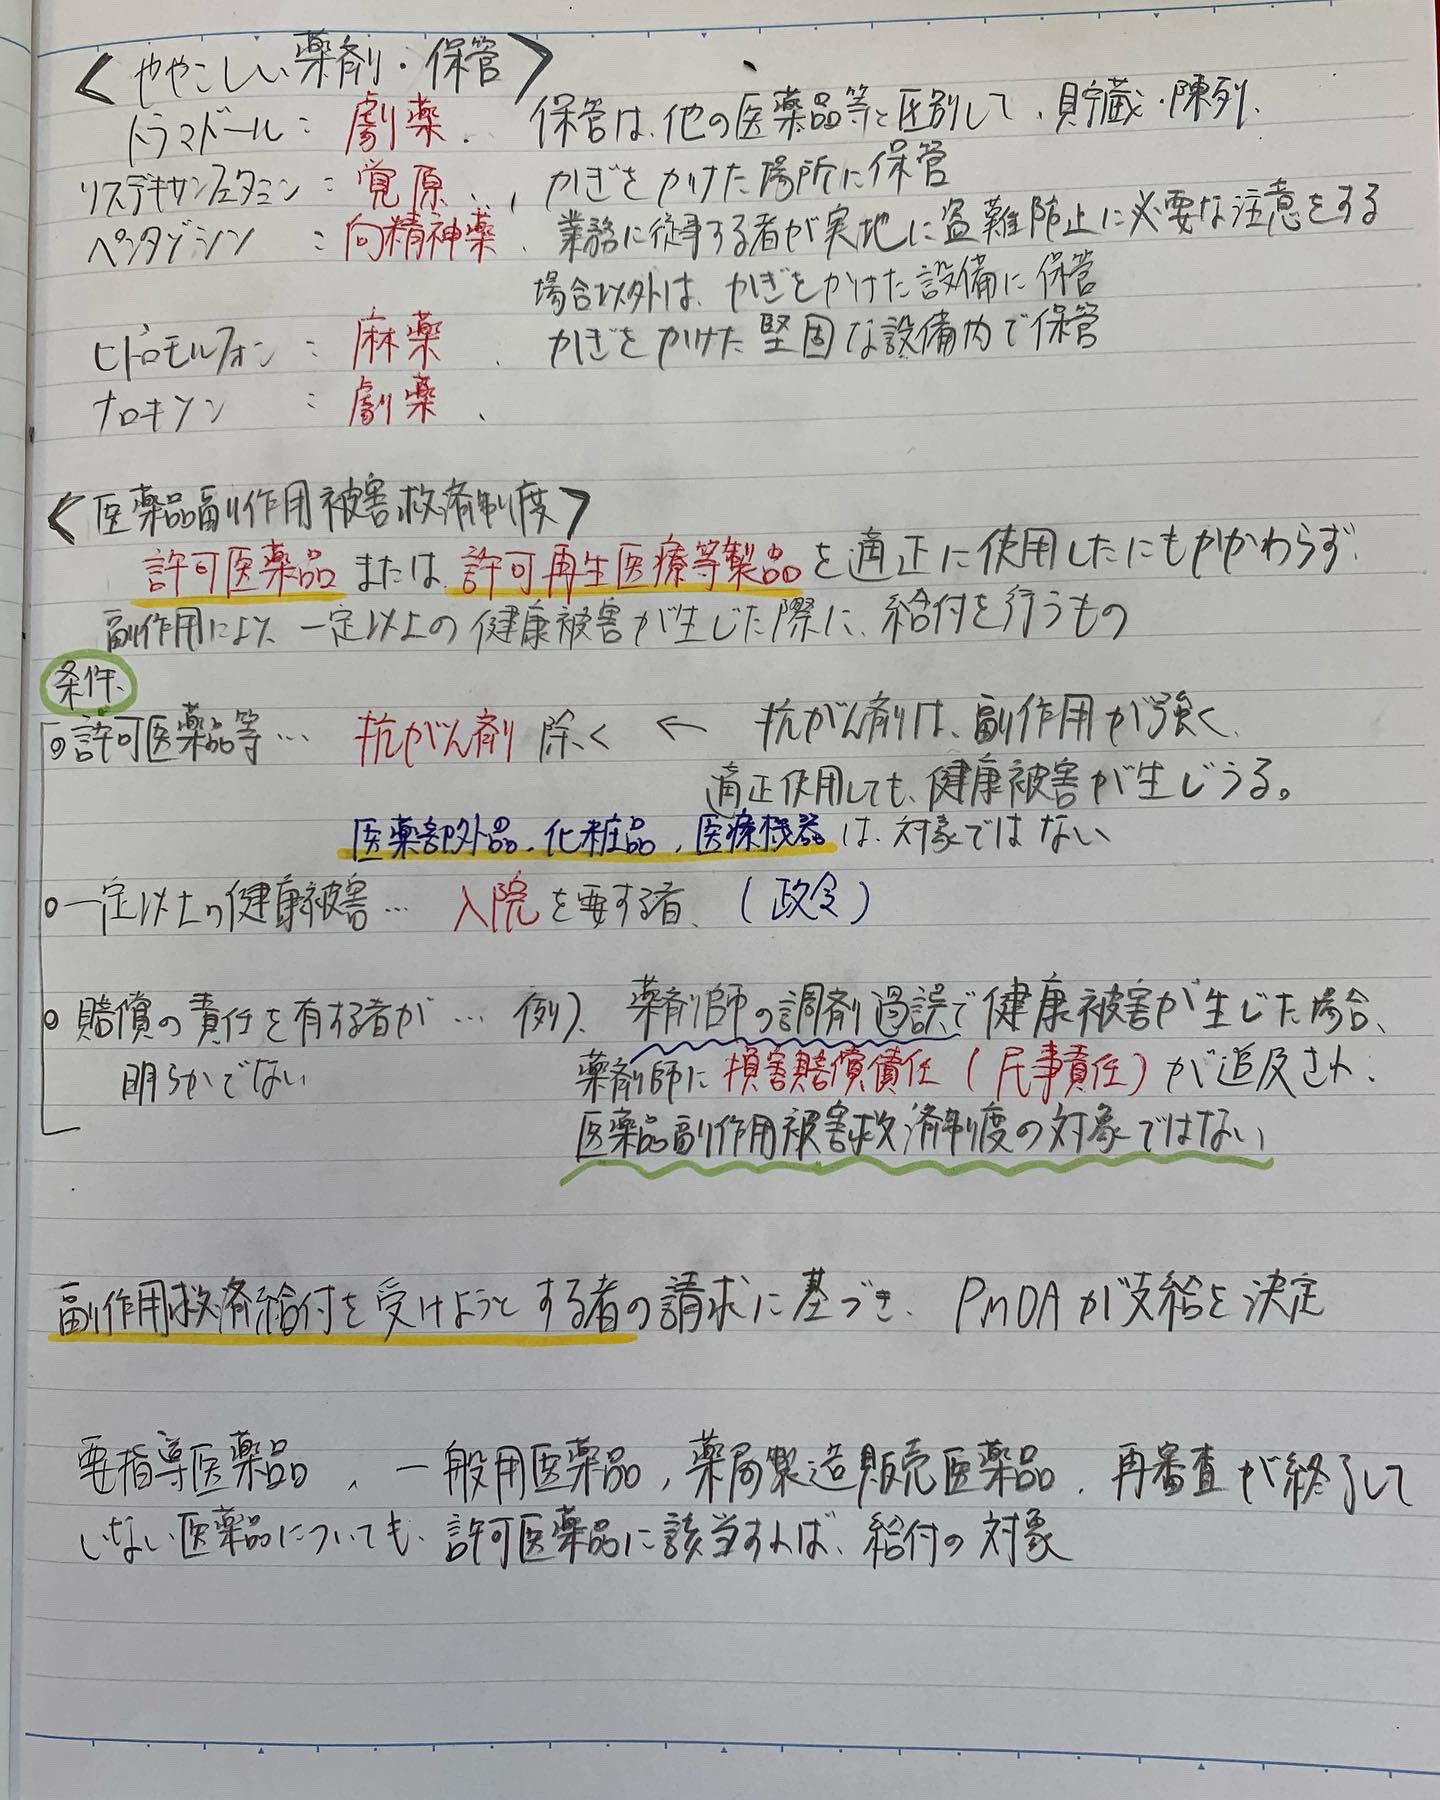 ＜ややこしい薬剤・保管＞
トラマドール：劇薬. 保管は、他の医薬品等と区別して、貯蔵・陳列、
リスデキサンフェタミン：覚原、、かぎをかけた場所に保管
ペンタゾシン：向精神薬、業務に従事する者が実地に盗難防止に必要な注意をする
場合以外は、かぎをかけた設備に保管
ヒドロモルフォン：麻薬、かぎをかけた堅固な設備内で保管
ナロキソン：劇薬、
＜医薬品副作用被害救済制度＞
許可医薬品または、許可再生医療等製品を適正に使用したにもかかわらず、
副作用により、一定以上の健康被害が生じた際に、給付を行うもの
条件、
○許可医薬品等… 抗がん剤除く ← 抗がん剤は、副作用が強く、
適正使用しても、健康被害が生じうる。
医薬部外品、化粧品、医療機器は、対象ではない
○一定以上の健康被害… 入院を要する者、（政令）
○賠償の責任を有する者が… 例）、薬剤師の調剤過誤で健康被害が生じた場合、
明らかでない 薬剤師に損害賠償責任（民事責任）が追及され、
医薬品副作用被害救済制度の対象ではない
副作用救済給付を受けようとする者の請求に基づき、PMDAが支給を決定
要指導医薬品、一般用医薬品、薬局製造販売医薬品、再審査が終了して
いない医薬品についても、許可医薬品に該当すれば、給付の対象